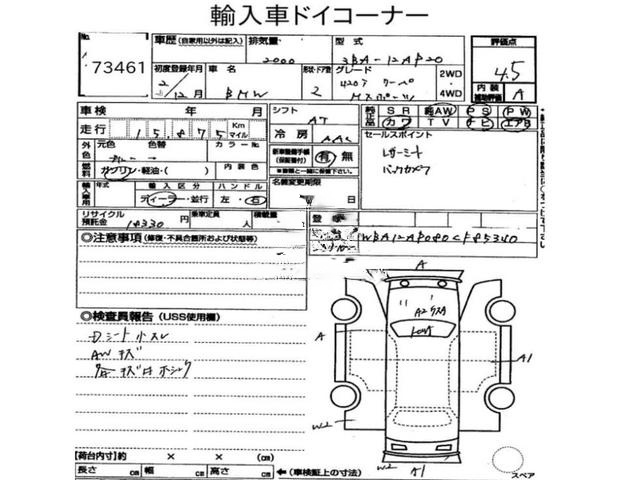 輸入車ドイコーナー
No.
73461
車歴 (自家用以外は記入)
排気量
2000
型式
3BA-12AP20
評価点
4.5
内装
補助評価
A
初度登録年月
2 / 12 月
車名
BMW
形状・ドア数
2
グレード
420i クーペ
Mスポーツ
2WD
4WD
車検 年 月
シフト
AT
純正品
SR
革 AW
PS
PW
カワ
TV
ナビ
エアB
走行
15,875
Km
マイル
冷房
AAC
セールスポイント
レザーシート
バックカメラ
外色
元色
色替
カラーNo.
ブルー
新車整備手帳
(保証書付)
有・無
※書類と一緒に保管下さい。
燃料
ガソリン・軽油・( )
内装色
名義変更期限
日
輸入車用
年式
輸入区分
ディーラー・並行
ハンドル
左・右
リサイクル
預託金
円
乗車定員
人
積載量
登
WBA12AP080CF85340
◎注意事項 (修復・不具合箇所および状態等)
◎検査員報告 (USS使用欄)
Dシートホスレ
AWキズ
A
A
A2
A1
W2
W2
A1
【荷台内寸】 × × (cm)
長さ cm 幅 cm 高さ cm
←(車検証上の寸法)
スペア